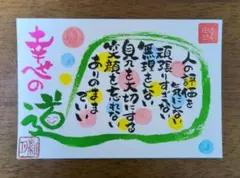 人の評価を
気にしない
頑張りすぎない
無理をしない
自分を大切にする
笑顔を忘れない
ありのまま
でいい
幸せの
道